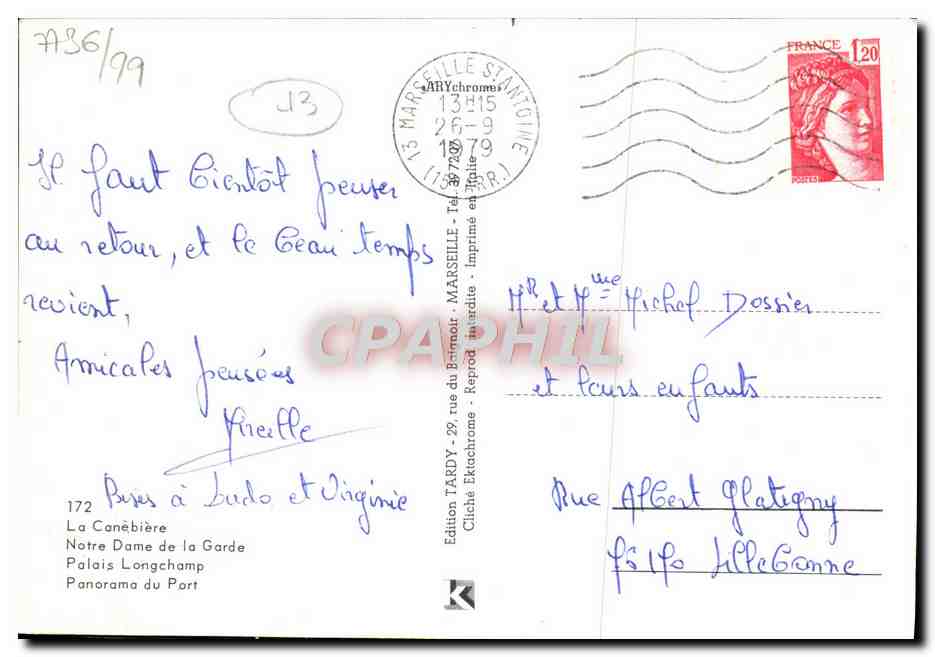 A36/99
13
FRANCE 1,20
POSTES
13 MARSEILLE ST ANTOINE
«ARYchrome»
13H15
26-9
1979
(15E ARR.)
Il faut bientôt penser
au retour, et le beau temps
revient,
Amicales pensées
Mireille
Bises à Ludo et Virginie
172
La Canèbière
Notre Dame de la Garde
Palais Longchamp
Panorama du Port
Edition TARDY - 29, rue du Baignoir - MARSEILLE - Tél.
Cliché Ektachrome - Reprod. interdite - Imprimé en Italie
K
CPAPHIL
Mr et Mme Michel Dossier
et leurs enfants
Rue Albert Glatigny
76170 Lillebonne